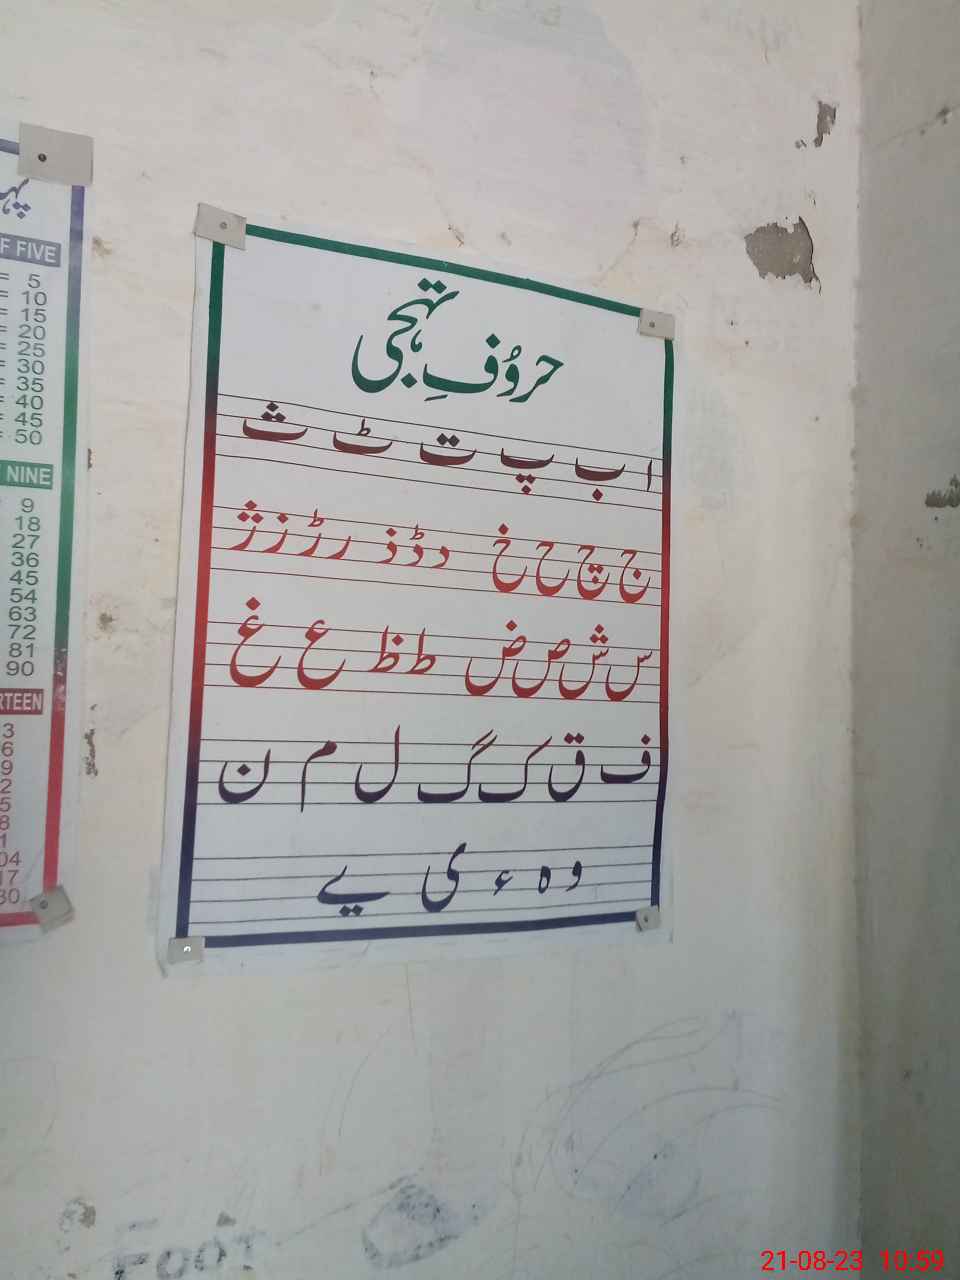 حروُفِ تہجی
ا ب پ ت ٹ ث
ج چ ح خ د ڈ ذ ر ڑ ز ژ
س ش ص ض ط ظ ع غ
ف ق ک گ ل م ن
و ہ ء ی ے
F FIVE
= 5
= 10
= 15
= 20
= 25
= 30
= 35
= 40
= 45
= 50
NINE
9
18
27
36
45
54
63
72
81
90
RTEEN
3
6
9
2
5
8
1
04
17
30
Foot
21-08-23 10:59